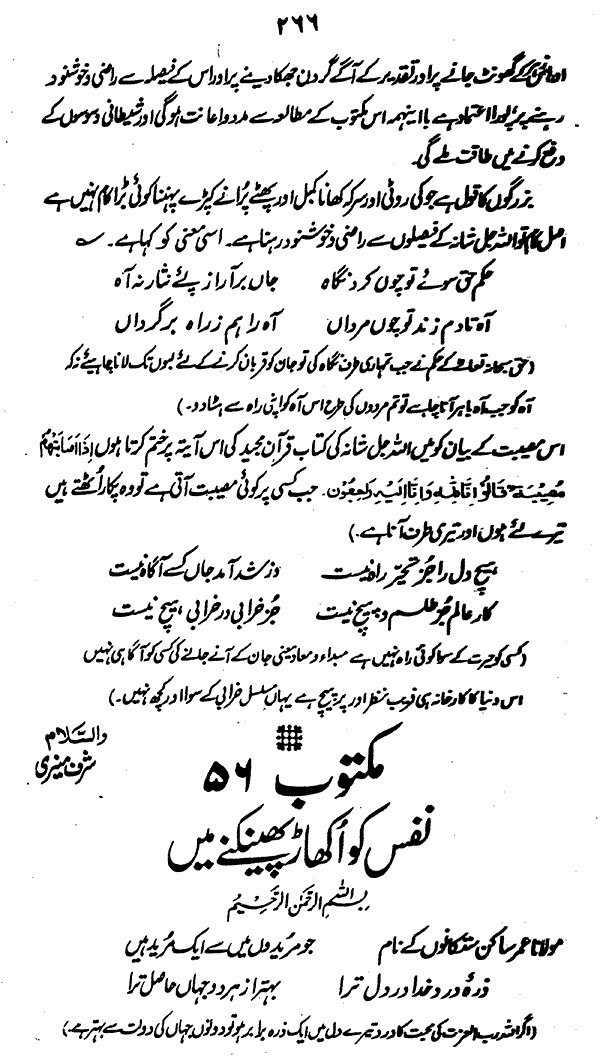 ۲۶۶
اور غصّے کے گھونٹ جانے پر اور تقدیر کے آگے گردن جھکا دینے پر اور اس کے فیصلہ سے راضی و خوشنود
رہنے پر پورا اعتماد ہے با اینہمہ اس مکتوب کے مطالعہ سے مدد و اعانت ہوگی اور شیطانی وسوسوں کے
دفع کرنے میں طاقت ملے گی۔
بزرگوں کا قول ہے جو کی روٹی اور سرکہ کھانا کمبل اور پھٹے پرانے کپڑے پہننا کوئی بڑا کام نہیں ہے
اصل کام تو اللہ جل شانہ کے فیصلوں سے راضی و خوشنود رہنا ہے۔ اسی معنی کو کہا ہے۔ ؎
حکم حق سوئے تو چوں کرد نگاہ جاں برآر از پئے نثار نہ آہ
آہ تا دم زند تو چوں مرداں آہ را ہم ز راہ برگرداں
(حق سبحانہ تعالےٰ کے حکم نے جب تمہاری طرف نگاہ کی تو جان کو قربان کرنے کے لئے لبوں تک لانا چاہیئے نہ کہ
آہ کو جب آہ باہر آنا چاہے تو تم مردوں کی طرح اس آہ کو اپنی راہ سے ہٹا دو۔)
اس مصیبت کے بیان کو میں اللہ جل شانہ کی کتاب قرآن مجید کی اس آیتہ پر ختم کرتا ہوں اِذَا اَصَابَتْهُمْ
مُصِيْبَةٌ قَالُوْا اِنَّا لِلّٰهِ وَاِنَّا اِلَيْهِ رَاجِعُوْن۔ جب کسی پر کوئی مصیبت آتی ہے تو وہ پکار اُٹھتے ہیں
تیرے لئے ہوں اور تیری طرف آنا ہے۔)
ہیچ دل را جز تحیّر راہ نیست وز شد آمد جاں کسے آگاہ نیست
کار عالم جز طلسم و پیچ نیست جز خرابی در خرابی ہیچ نیست
(کسی کو حیرت کے سوا کوئی راہ نہیں ہے مبداء و معاد یعنی جان کے آنے جانے کی کسی کو آگاہی نہیں
اس دنیا کا کارخانہ ہی فریب نظر اور پر پیچ ہے یہاں مسلسل خرابی کے سوا اور کچھ نہیں۔)
والسّلام
شرف منیری
مکتوب ۵۶
نفس کو اُکھاڑ پھینکنے میں
بِسْمِ اللّٰهِ الرَّحْمٰنِ الرَّحِيْمِ
مولانا عمر ساکن کے نام جو مریدوں میں سے ایک مرید ہیں
ذرۂ درد خدا در دل ترا بہتر از ہر دو جہاں حاصل ترا
(اگر اللہ رب العزت کی محبت کا درد تیرے دل میں ایک ذرہ برابر ہو تو دونوں جہاں کی دولت سے بہتر ہے۔)